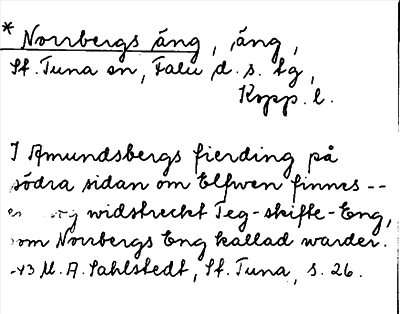 * Norrbergs äng, äng,
St. Tuna sn, Falu d. s. tg,
Kopp. l.
I Amundsbergs fierding på
södra sidan om Elfwen finnes --
widstreckt Teg-skifte-Eng,
som Norrbergs Eng kallad warder.
M. A. Sahlstedt, St. Tuna, s. 26.